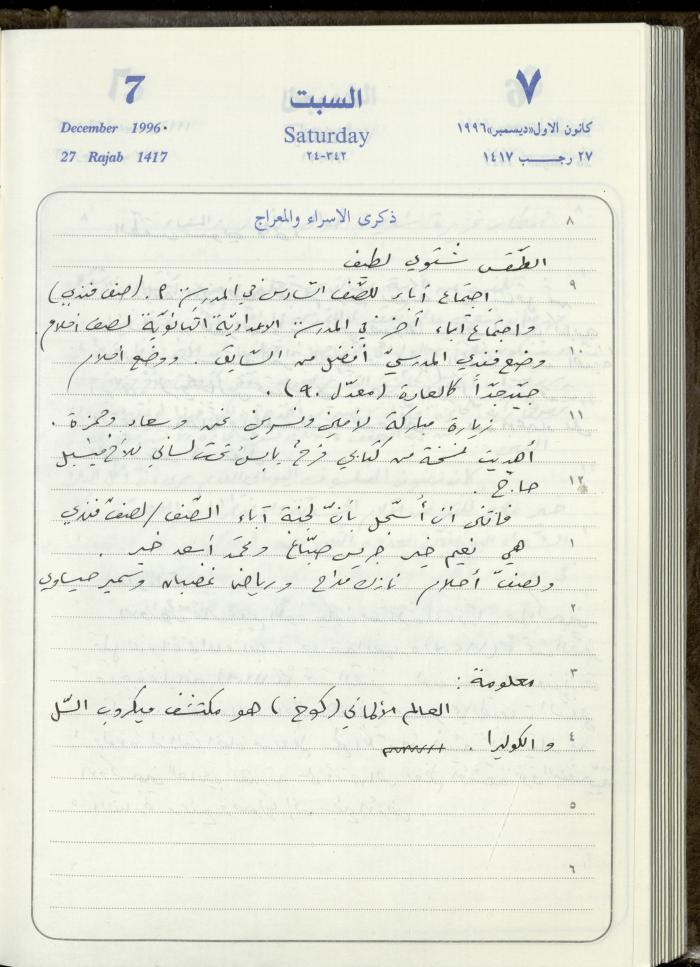 7
السبت
٧
December 1996
Saturday
كانون الاول«ديسمبر»١٩٩٦
27 Rajab 1417
٣٤٢-٢٤
٢٧ رجب ١٤١٧
ذكرى الاسراء والمعراج
٨
الطّقس شتوي لطيف
٩
اجتماع آباء للصّف السّادس في المدرسة م. (صف فندي)
واجتماع آباء آخر في المدرسة الاعداديّة الثّانويّة لصف احلام
١٠
وضع فندي المدرسيّ أفضل من السّابق. ووضع احلام
جيّد جدّاً كالعادة (معدّل ٩٠).
١١
زيارة مباركة لأمين ونسرين نحن وسعاد وحمزة.
أهديت نسخة من كتابي فرح يابس تحت لساني للأخ ميشيل
١٢
حاج.
فاتني أن أسجّل بأنّ لجنة آباء الصّف/لصف فندي
١
هي نعيم خير جريس صبّاغ ومحمّد أسعد خير.
ولصفّ أحلام نازك مداح ورياض غضبان وسمير عيساوي
٢
٣
معلومة:
العالم الألماني (كوخ) هو مكتشف ميكروب السّل
٤
والكوليرا.
٥
٦